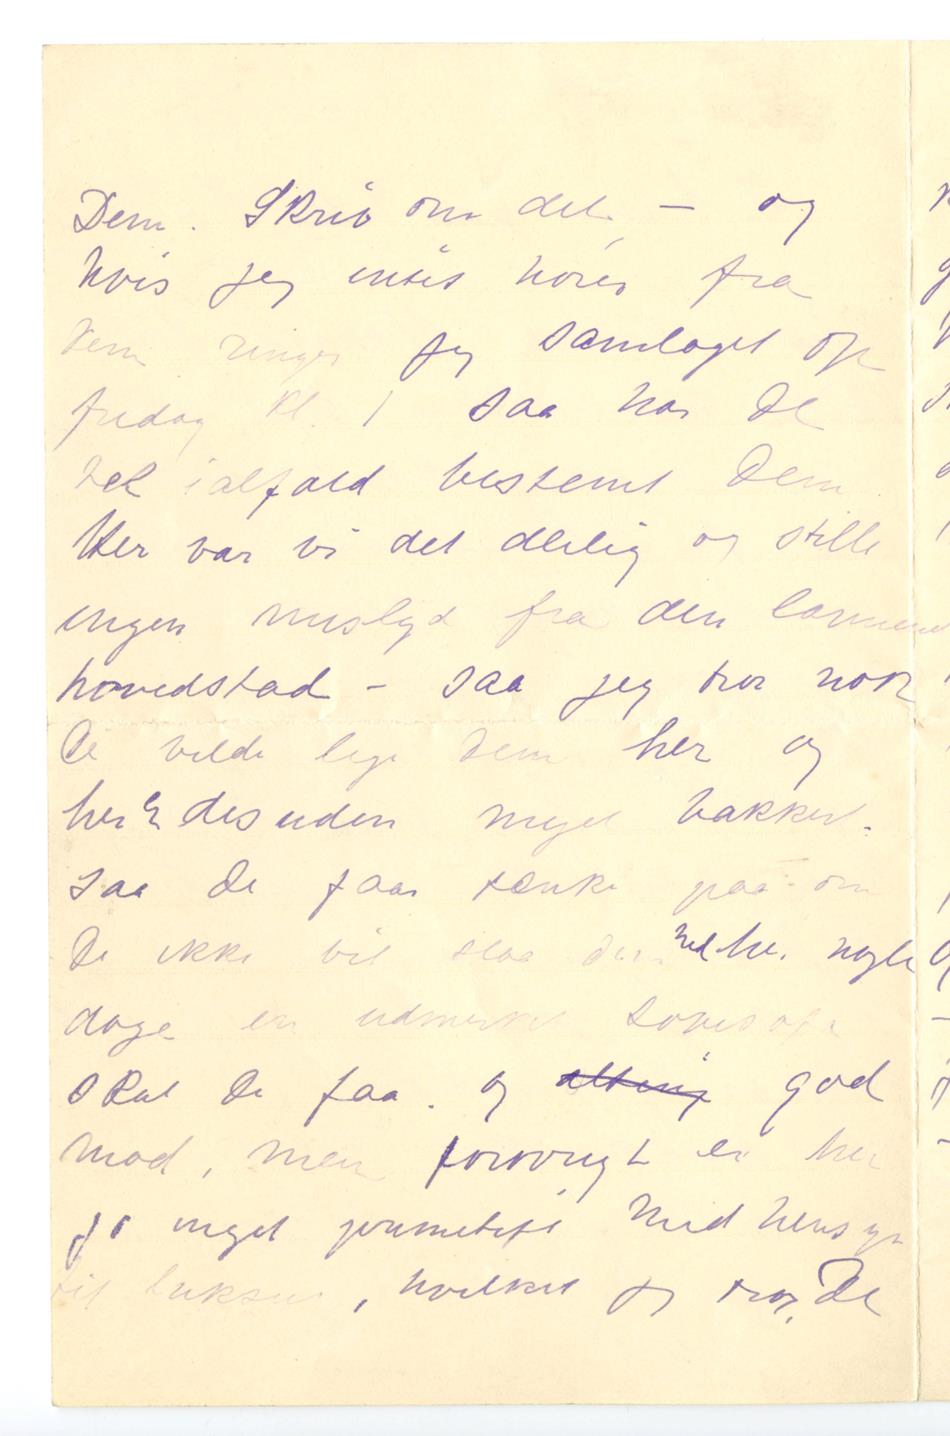 Dem. Skriv om det. – og
hvis jeg intet hører fra
Dem ringer jeg Samlaget op
fredag kl. 1 saa har De
vel ialfald bestemt Dem.
Her var vi det deilig og stille
ingen mislyd fra den larmende
hovedstad – saa jeg tror nok
De vilde lige Dem her og
her er desuden meget vakkert.
saa De faar tænke paa om
De ikke vil slaa Dem ned her nogle
dage en udmerket sovesofa
skal De faa. og alting god
mad, men forøvrigt er her
jo meget primitivt med hensyn
til luksus, hvilket jeg tror, De